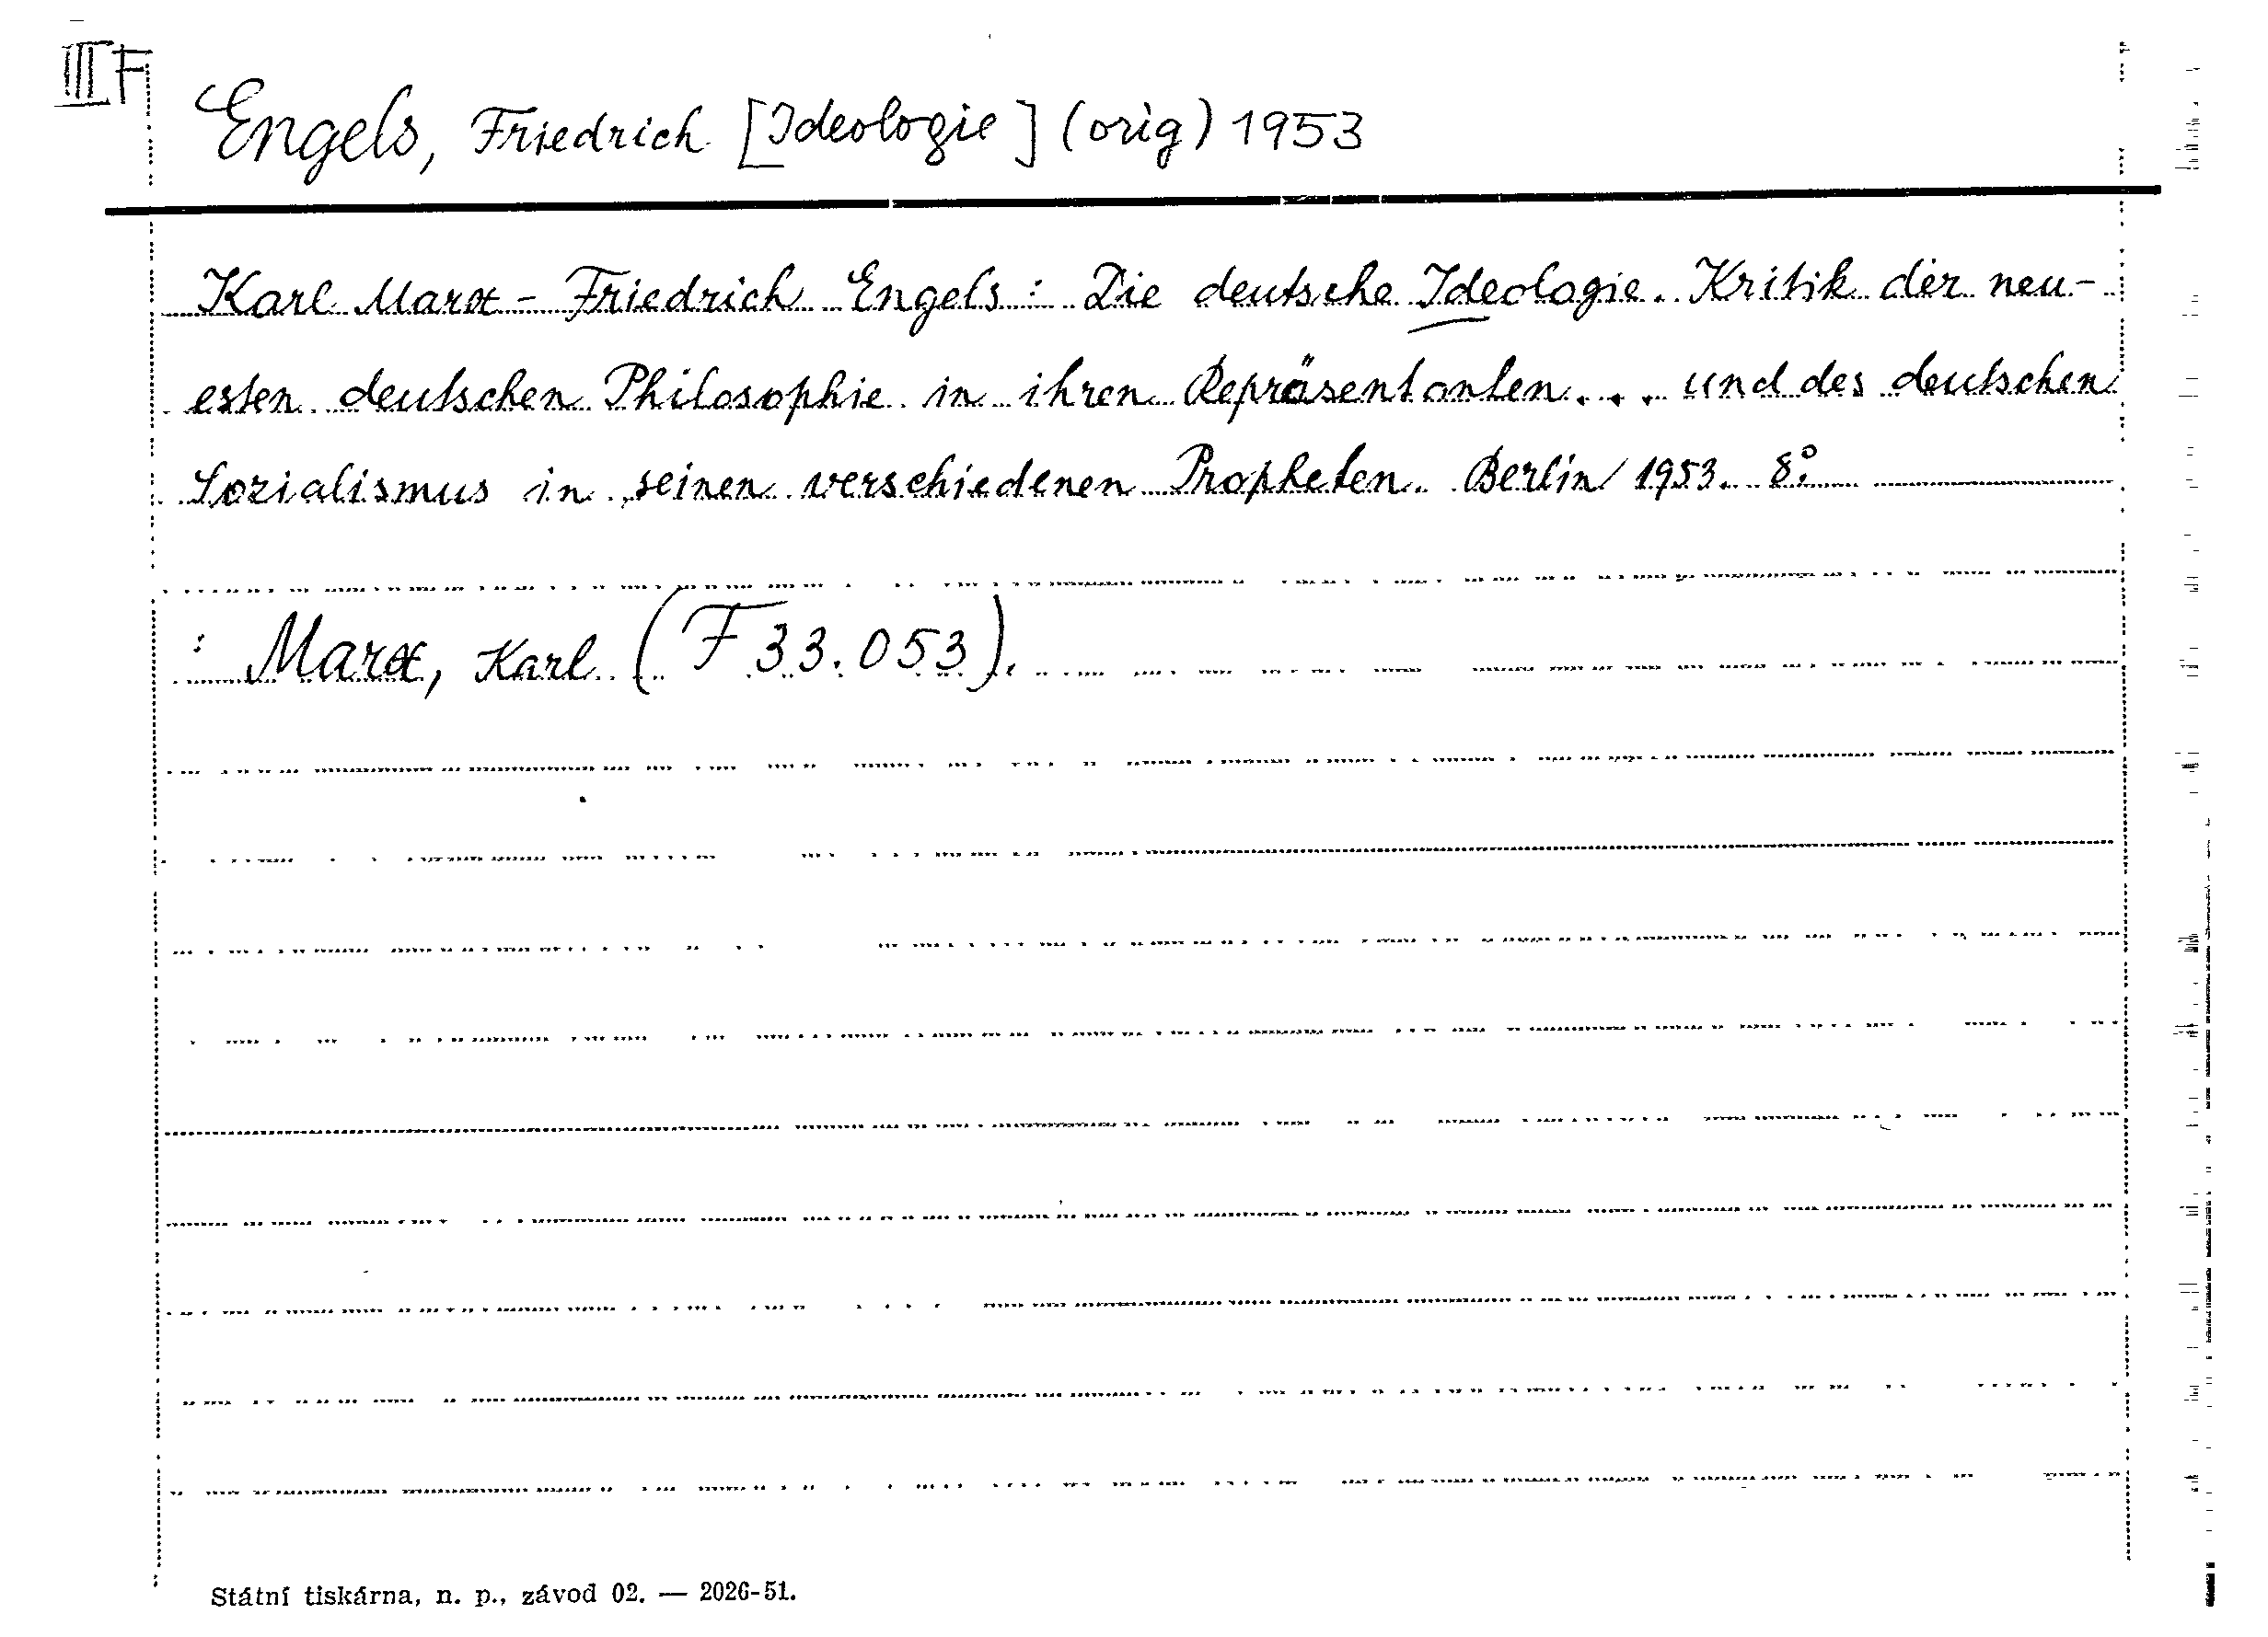 III F
Engels, Friedrich [Ideologie] (orig) 1953
Karl Marx - Friedrich Engels: Die deutsche Ideologie. Kritik der neu-
esten deutschen Philosophie in ihren Repräsentanten... und des deutschen
Sozialismus in seinen verschiedenen Propheten. Berlin 1953. 8°.
: Marx, Karl (F 33.053).
Státní tiskárna, n. p., závod 02. — 2026-51.